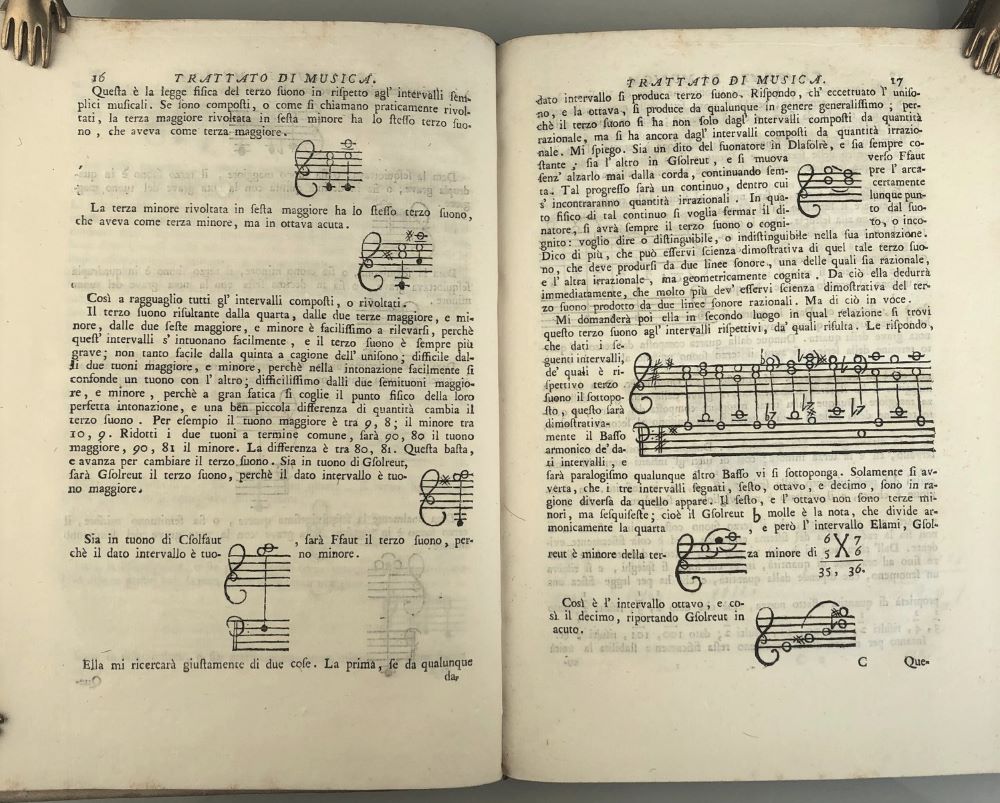 16 TRATTATO DI MUSICA.
Questa è la legge fisica del terzo suono in rispetto agl' intervalli sem-
plici musicali. Se sono composti, o come si chiamano praticamente rivol-
tati, la terza maggiore rivoltata in sesta minore ha lo stesso terzo suo-
no, che aveva come terza maggiore.
La terza minore rivoltata in sesta maggiore ha lo stesso terzo suono,
che aveva come terza minore, ma in ottava acuta.
Così a ragguaglio tutti gl' intervalli composti, o rivoltati.
Il terzo suono risultante dalla quarta, dalle due terze maggiore, e mi-
nore, dalle due seste maggiore, e minore è facilissimo a rilevarsi, perchè
quest' intervalli s' intuonano facilmente, e il terzo suono è sempre più
grave; non tanto facile dalla quinta a cagione dell' unisono; difficile dal-
li due tuoni maggiore, e minore, perchè nella intonazione facilmente si
confonde un tuono con l' altro; difficilissimo dalli due semituoni maggio-
re, e minore, perchè a gran fatica si coglie il punto fisico della loro
perfetta intonazione, e una ben piccola differenza di quantità cambia il
terzo suono. Per esempio il tuono maggiore è tra 9, 8; il minore tra
10, 9. Ridotti i due tuoni a termine comune, sarà 90, 80 il tuono
maggiore, 90, 81 il minore. La differenza è tra 80, 81. Questa basta,
e avanza per cambiare il terzo suono. Sia in tuono di Gsolreut,
sarà Gsolreut il terzo suono, perchè il dato intervallo è tuo-
no maggiore.
Sia in tuono di Csolfaut , sarà Ffaut il terzo suono, per-
chè il dato intervallo è tuo- no minore.
Ella mi ricercarà giustamente di due cose. La prima, se da qualunque
da-
TRATTATO DI MUSICA. 17
dato intervallo si produca terzo suono. Rispondo, ch' eccettuato l' uniso-
no, e la ottava, si produce da qualunque in genere generalissimo; per-
chè il terzo suono si ha non solo dagl' intervalli composti da quantità
razionale, ma si ha ancora dagl' intervalli composti da quantità irrazio-
nale. Mi spiego. Sia un dito del suonatore in Dlasolrè, e sia sempre co-
stante; sia l' altro in Gsolreut, e si muova verso Ffaut
senz' alzarlo mai dalla corda, continuando sem- pre l' arca-
ta. Tal progresso sarà un continuo, dentro cui certamente
s' incontraranno quantità irrazionali. In qua- lunque pun-
to fisico di tal continuo si voglia fermar il di- to dal suo-
natore, si avrà sempre il terzo suono o cogni- to, o inco-
gnito: voglio dire o distinguibile, o indistinguibile nella sua intonazione.
Dico di più, che può esservi scienza dimostrativa di quel tale terzo suo-
no, che deve prodursi da due linee sonore, una delle quali sia razionale,
e l' altra irrazionale, ma geometricamente cognita. Da ciò ella dedurrà
immediatamente, che molto più dev' esservi scienza dimostrativa del ter-
zo suono prodotto da due linee sonore razionali. Ma di ciò in voce.
Mi domanderà poi ella in secondo luogo in qual relazione si trovi
questo terzo suono agl' intervalli rispettivi, da' quali risulta. Le rispondo,
che dati i se-
guenti intervalli,
de' quali è ri-
spettivo terzo
suono il sottopo-
sto, questo sarà
dimostrativa-
mente il Basso
armonico de' da-
ti intervalli, e
sarà paralogismo qualunque altro Basso vi si sottoponga. Solamente si av-
verta, che i tre intervalli segnati, sesto, ottavo, e decimo, sono in ra-
gione diversa da quello appare. Il sesto, e l' ottavo non sono terze mi-
nori, ma sesquiseste; cioè il Gsolreut b molle è la nota, che divide ar-
monicamente la quarta , e però l' intervallo Elami, Gsol-
reut è minore della ter- za minore di 6 X 7
5 6
35, 36.
Così è l' intervallo ottavo, e co-
sì il decimo, riportando Gsolreut in
acuto.
C Que-